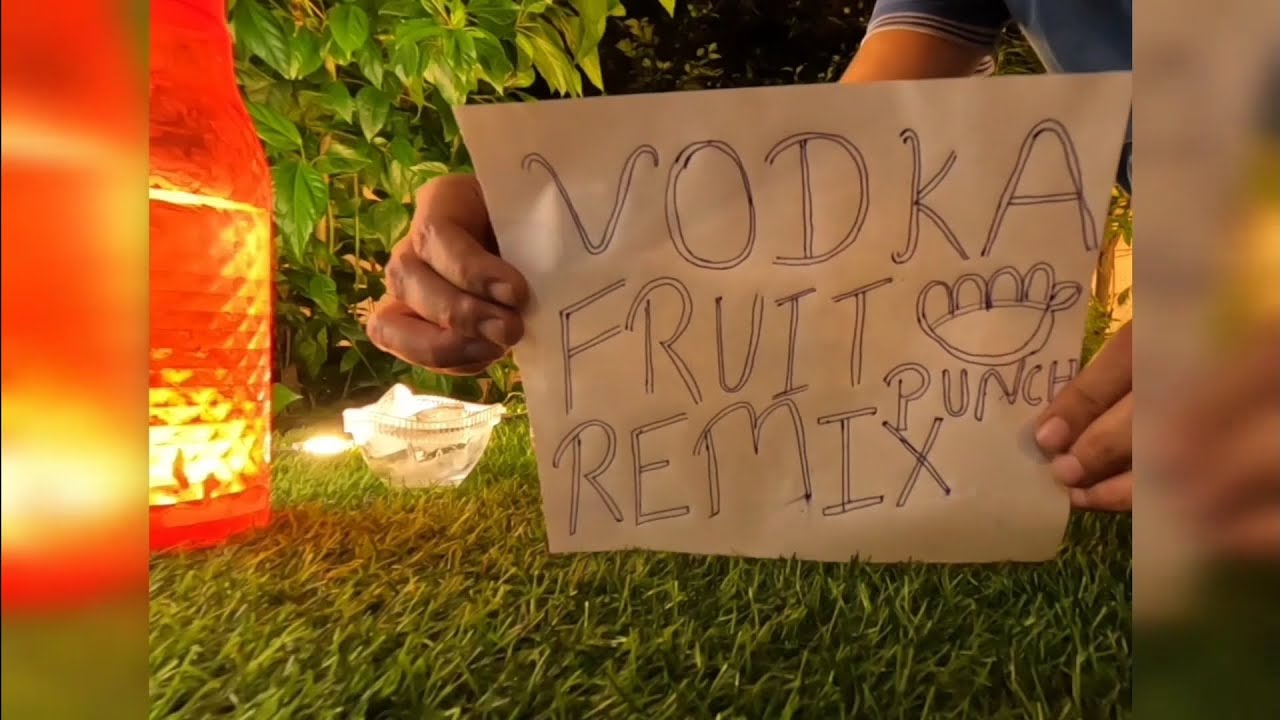 VODKA
FRUIT
PUNCH
REMIX